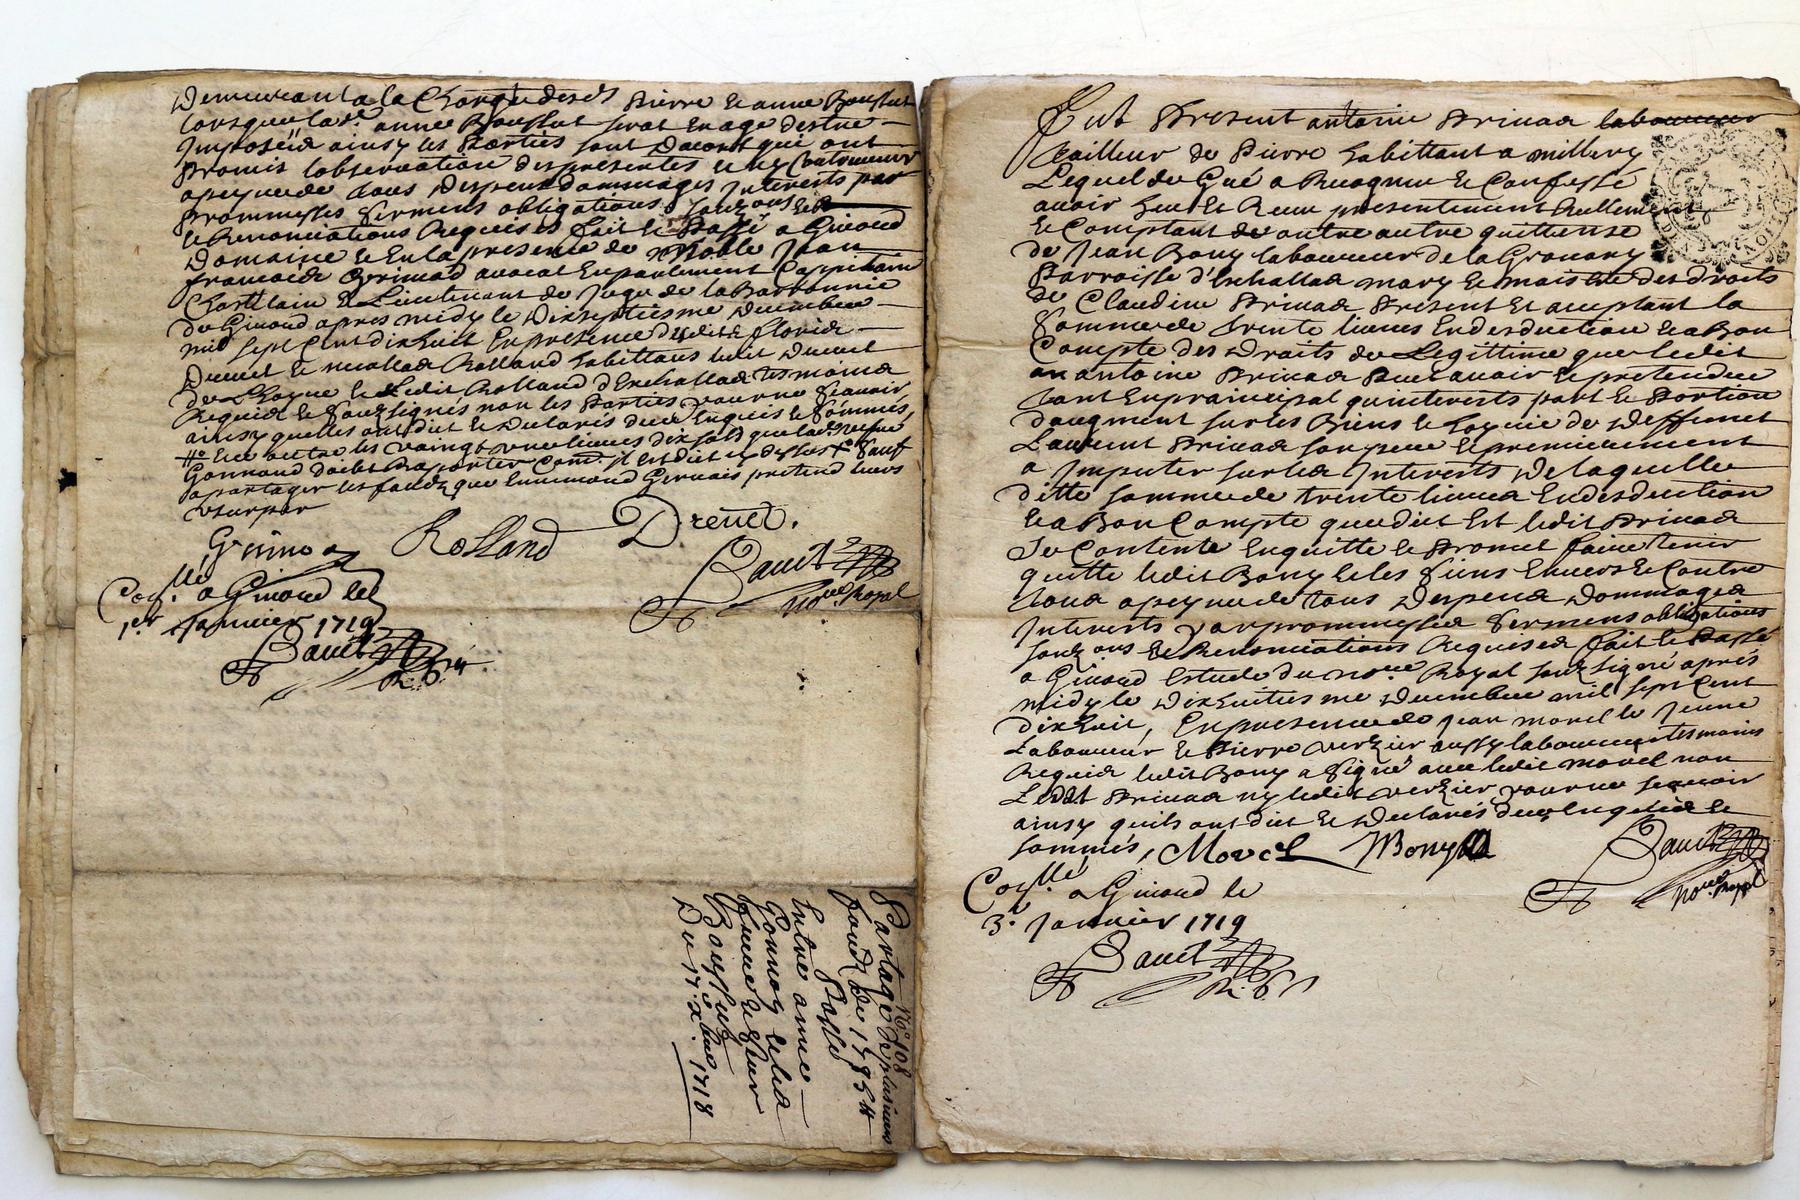 Demeurant a la Charge desd Pierre et anne Bouffut
lorsque lad. anne Bouffut serat en age destre
Imposéé ainsy les Parties sont dacord qui ont
Promis lobservation des presentes et ny Contrevenir
apeyne de tous despens dommages Interests par
Prommesses serments obligations
et Renonciations Requises fait et Passé a Givord
Domaine et En la presence de Noble Jean
francois Grimod avocat En parlement Cappitaine
Chastelain et Lieutenant de Juge de la Baronnie
de Givord apres midy le Dixseptiesme Decembre
mil sept Cent dix huit En presence de
Drevet et nicollas Rolland habittans ledit Drevet
de et Ledit Rolland d'Eschallas tesmoins
Requis et Soussignés non les Parties pour ne scavoir
ainsy quelles ont dict et Declarés de ce Enquis et Sommés,
Et outre les vaingt une livres dix sols que
Gonnand doibt Rapporter Com. il est dict cy dessus Sauf
a partager les fonds que Ennimond Gervais pretend leurs
usurper
Grimod Rolland Drevet.
Bauet
no.re Royal
Co.llé a Givord le
1.er Janvier 1719
Bauet
N° 108
Partage de plusieurs
fonds de 1785 lt
Passé
Entre anne
Gonnog et les
frere et Seur
Bouffut
Du 17. x.bre 1718
Fut Present antoine Privas laboureur
tailleur de Pierre habittant a millery
Lequel de Gré a Recognu et Confessé
avoir heu et Receu presentement Reellement
et Comptant de outre autre quittense
de Jean Bony laboureur de la Gronary
Parroisse d'Eschallas mary et maistre des droits
de Claudine Privas Present et acceptant la
Somme de trente livres En desduction et a Bon
Compte des Droits de Legittime que ledit
antoine Privas Peut avoir et pretendre
tant En principal quinterests part et Portion
daugment sur les Biens et hoyrie de deffunct
Laurent Privas son pere et premierement
a Imputer sur les Interests De laquelle
ditte somme de trente livres En desduction
et a Bon Compte que dict Est ledit Privas
Se Contente En quitte et Promet faire tenir
quitte ledit Bony et les Siens Envers et Contre
tous apeyne de tous Despens Dommages
Interests par prommesses Serments obligations
et Renonciations Requises fait et Passé
a Givord Estude du no.re Royal soussigné aprés
midy le Dixhuitiesme Decembre mil sept Cent
dix huit, En presence de Jean morel le Jeune
Laboureur et Pierre verzier aussy laboureur tesmoins
Requis ledit Bony a Signé avec ledit morel non
Ledit Privas ny ledit verzier pour ne scavoir
ainsy quils ont dict et Declarés de ce Enquis et
Sommés, Morel Bony
Bauet
no.re Royal
Co.llé a Givord le
3.e Janvier 1719
Bauet